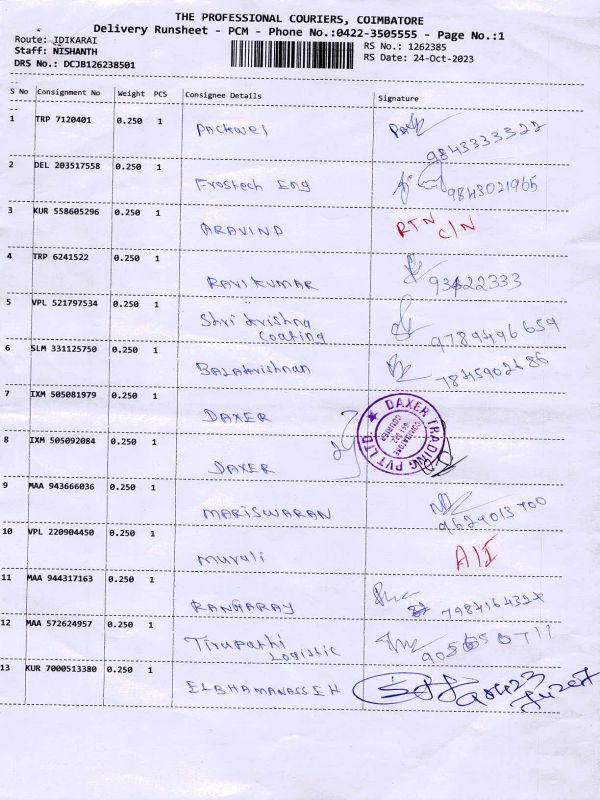 THE PROFESSIONAL COURIERS, COIMBATORE
Delivery Runsheet - PCM - Phone No.:0422-3505555 - Page No.:1
Route: IDIKARAI
RS No.: 1262385
Staff: NISHANTH
RS Date: 24-Oct-2023
DRS No.: DCJB126238501
S No Consignment No Weight PCS Consignee Details Signature
1 TRP 7120401 0.250 1 Packwel
9843333322
2 DEL 203517558 0.250 1 Frostech Eng 9843021965
3 KUR 558605296 0.250 1 ARAVIND RTN C/N
4 TRP 6241522 0.250 1 RAVIKUMAR 93422333
5 VPL 521797534 0.250 1 Shri Krishna Coating 9789496659
6 SLM 331125750 0.250 1 Balakrishnan
7 IXM 505081979 0.250 1 DAXER
DAXER TRADING PVT LTD
COIMBATORE
8 IXM 505092084 0.250 1 DAXER
9 MAA 943666036 0.250 1 MARISWARAN 9629013700
10 VPL 220904450 0.250 1 Murali
11 MAA 944317163 0.250 1 RANGARAY
12 MAA 572624957 0.250 1 Tirupathi Logistic
13 KUR 7000513380 0.250 1 ELBHAMANASSEH